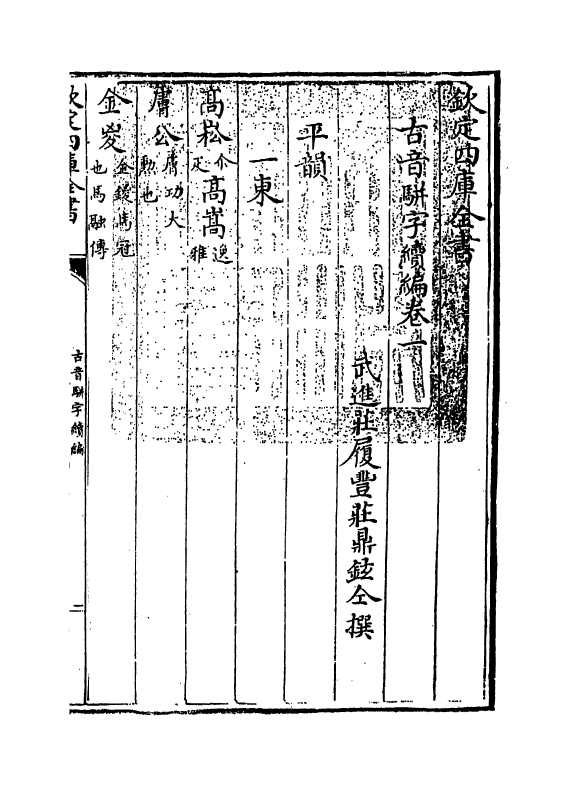 欽定四庫全書
古音駢字續編卷一
武進莊履豐莊鼎鉉仝撰
平韻
一東
高崧 介疋 高嵩 逸雅
膚公 膚功大勲也
金㚇 金鍐馬冠也馬融傳
欽定四庫全書
古音駢字續編